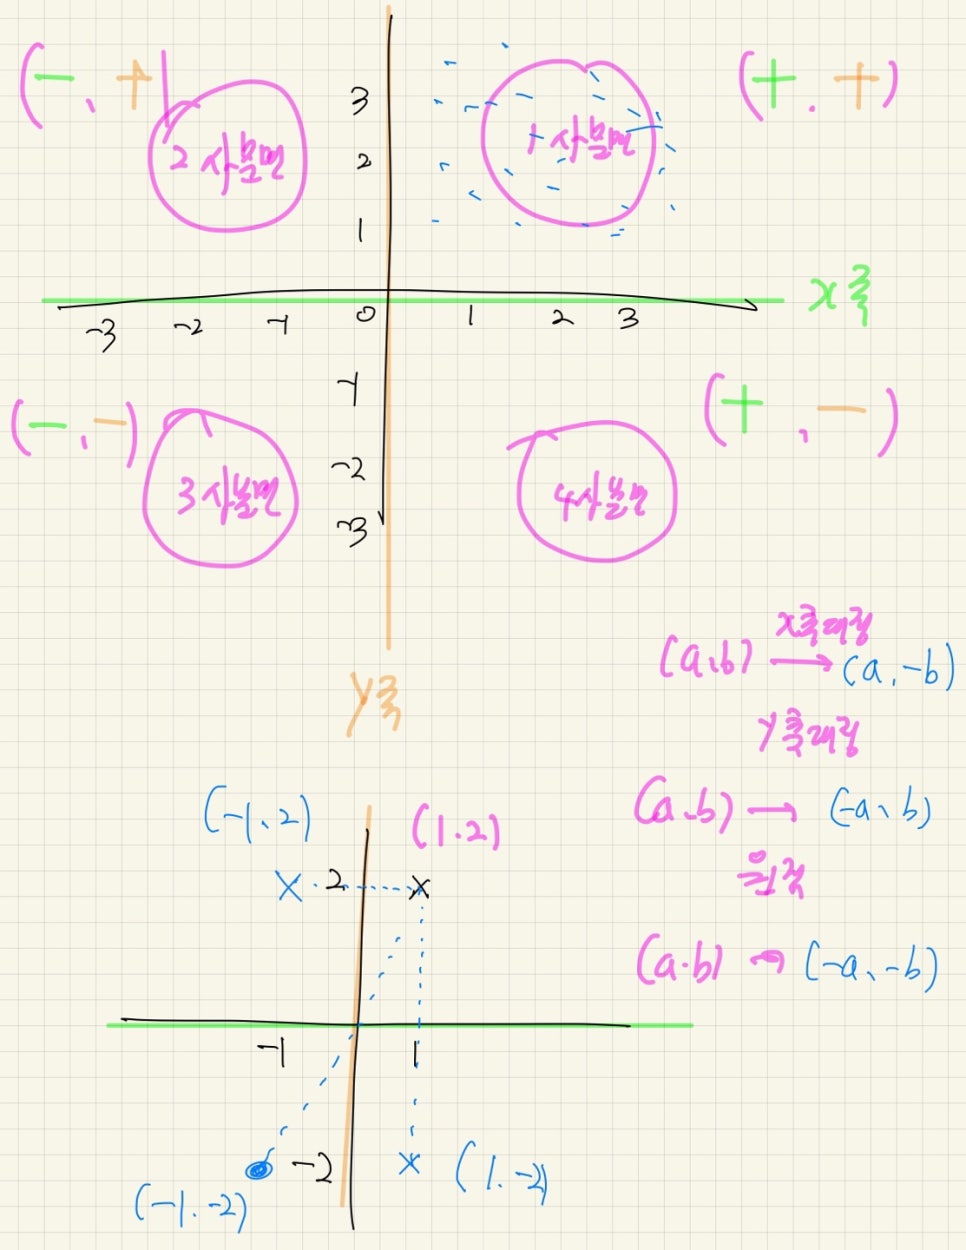 (-, +)
(+, +)
3
2사분면
1사분면
2
1
x축
-3 -2 -1 0 1 2 3
-1
(-, -)
(+, -)
-2
3사분면
4사분면
-3
x축대칭
(a,b) → (a, -b)
y축
y축대칭
(-1, 2)
(1, 2)
(a,b) → (-a, b)
x 2 x
원점
(a,b) → (-a, -b)
-1 1
-2 x (1, -2)
(-1, -2)